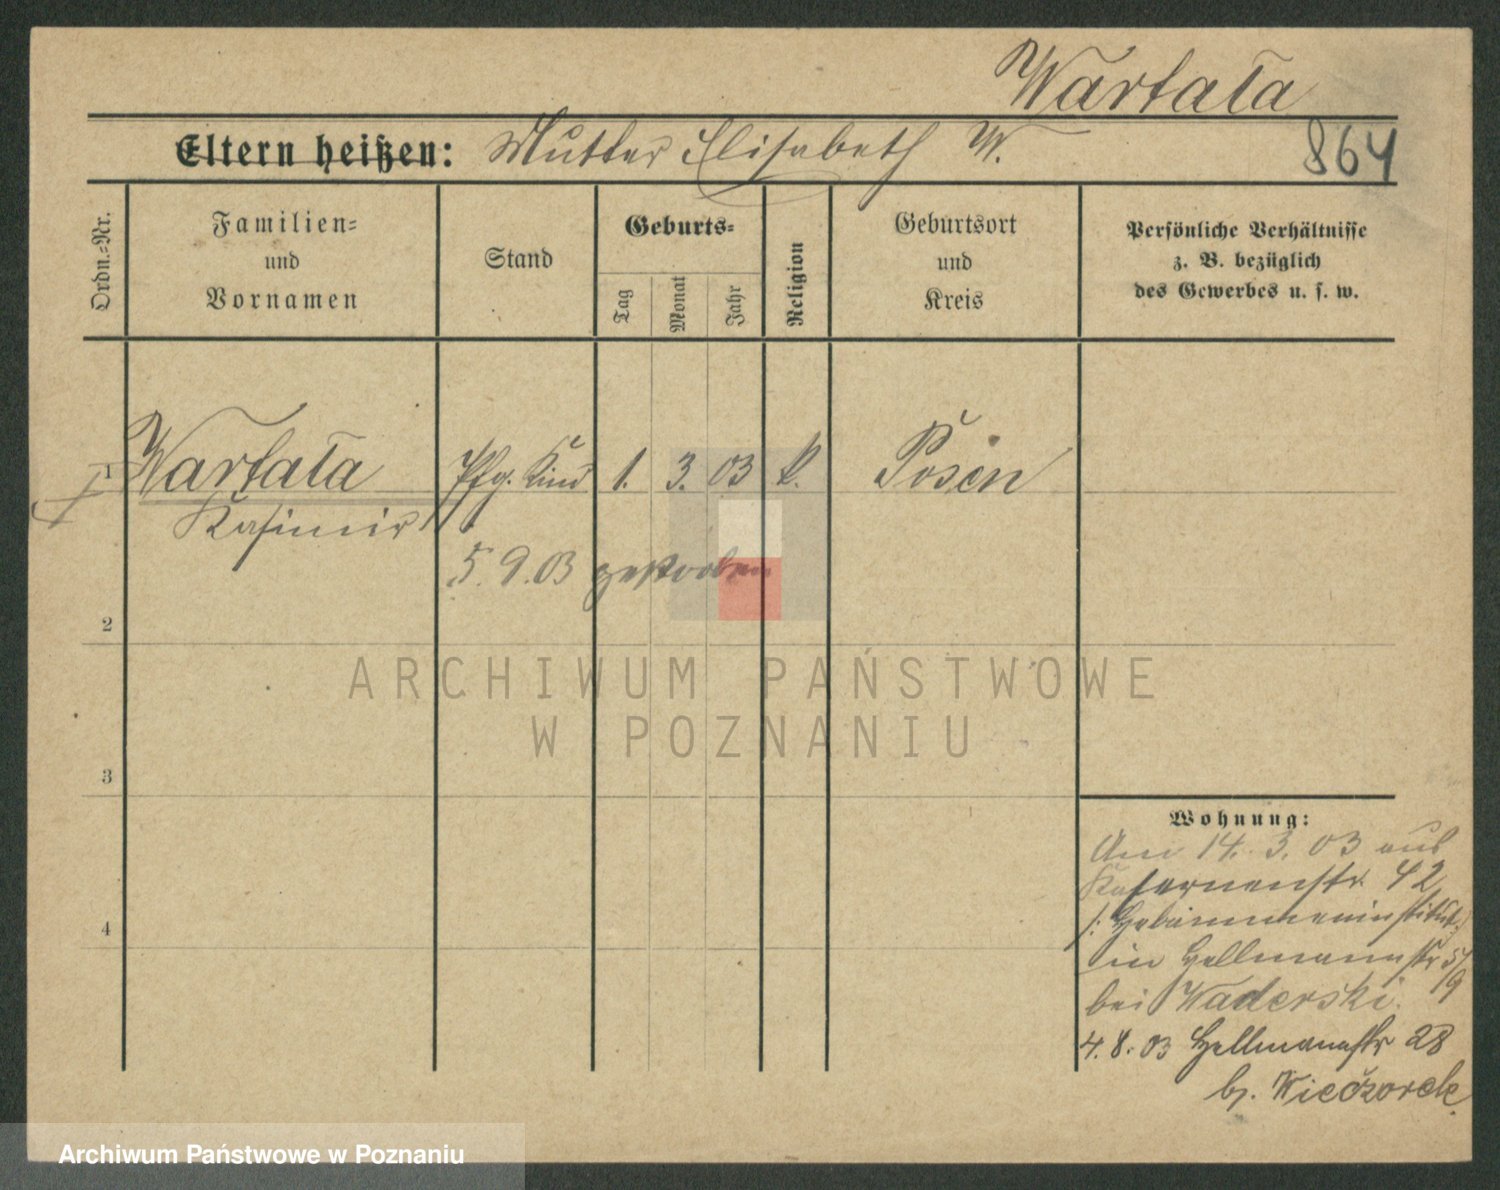 Wartala
Eltern heißen: Mutter Elisabeth W.
864
Ordn.=Nr.
Familien=
und
Vornamen
Stand
Geburts=
Tag
Monat
Jahr
Religion
Geburtsort
und
Kreis
Persönliche Verhältnisse
z. B. bezüglich
des Gewerbes u. s. w.
1 Wartala Pflg. Kind 1. 3. 03 k. Posen
Kasimir
5. 9. 03 gestorben
2
3
4
Wohnung:
Am 14. 3. 03 aus
Kasernenstr. 42
/: Hebammeninstitut :/
in Hellmannstr 5/9
bei Waderski.
4. 8. 03 Hellmannstr 28
b. Wieczorek.
ARCHIWUM PAŃSTWOWE
W POZNANIU
Archiwum Państwowe w Poznaniu